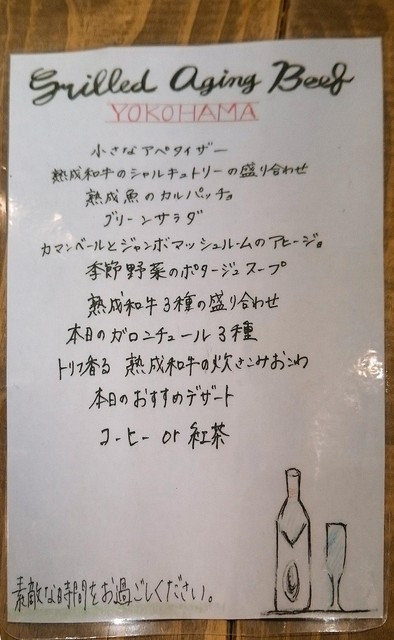 Grilled Aging Beef
YOKOHAMA
小さなアペタイザー
熟成和牛のシャルキュトリーの盛り合わせ
熟成魚のカルパッチョ
グリーンサラダ
カマンベールとジャンボマッシュルームのアヒージョ
季節野菜のポタージュスープ
熟成和牛3種の盛り合わせ
本日のガロンチュール3種
トリュフ香る 熟成和牛の炊きこみおこわ
本日のおすすめデザート
コーヒー or 紅茶
素敵な時間をお過ごしください。